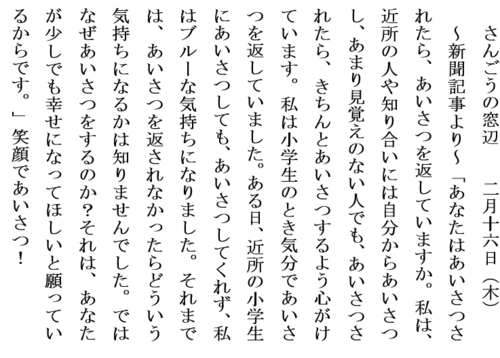 さんごうの窓辺　　二月十六日（木）
～新聞記事より～「あなたはあいさつさ
れたら、あいさつを返していますか。私は、
近所の人や知り合いには自分からあいさつ
し、あまり見覚えのない人でも、あいさつさ
れたら、きちんとあいさつするよう心がけ
ています。私は小学生のとき気分であいさ
つを返していました。ある日、近所の小学生
にあいさつしても、あいさつしてくれず、私
はブルーな気持ちになりました。それまで
は、あいさつを返されなかったらどういう
気持ちになるかは知りませんでした。では
なぜあいさつをするのか？それは、あなた
が少しでも幸せになってほしいと願ってい
るからです。」笑顔であいさつ！